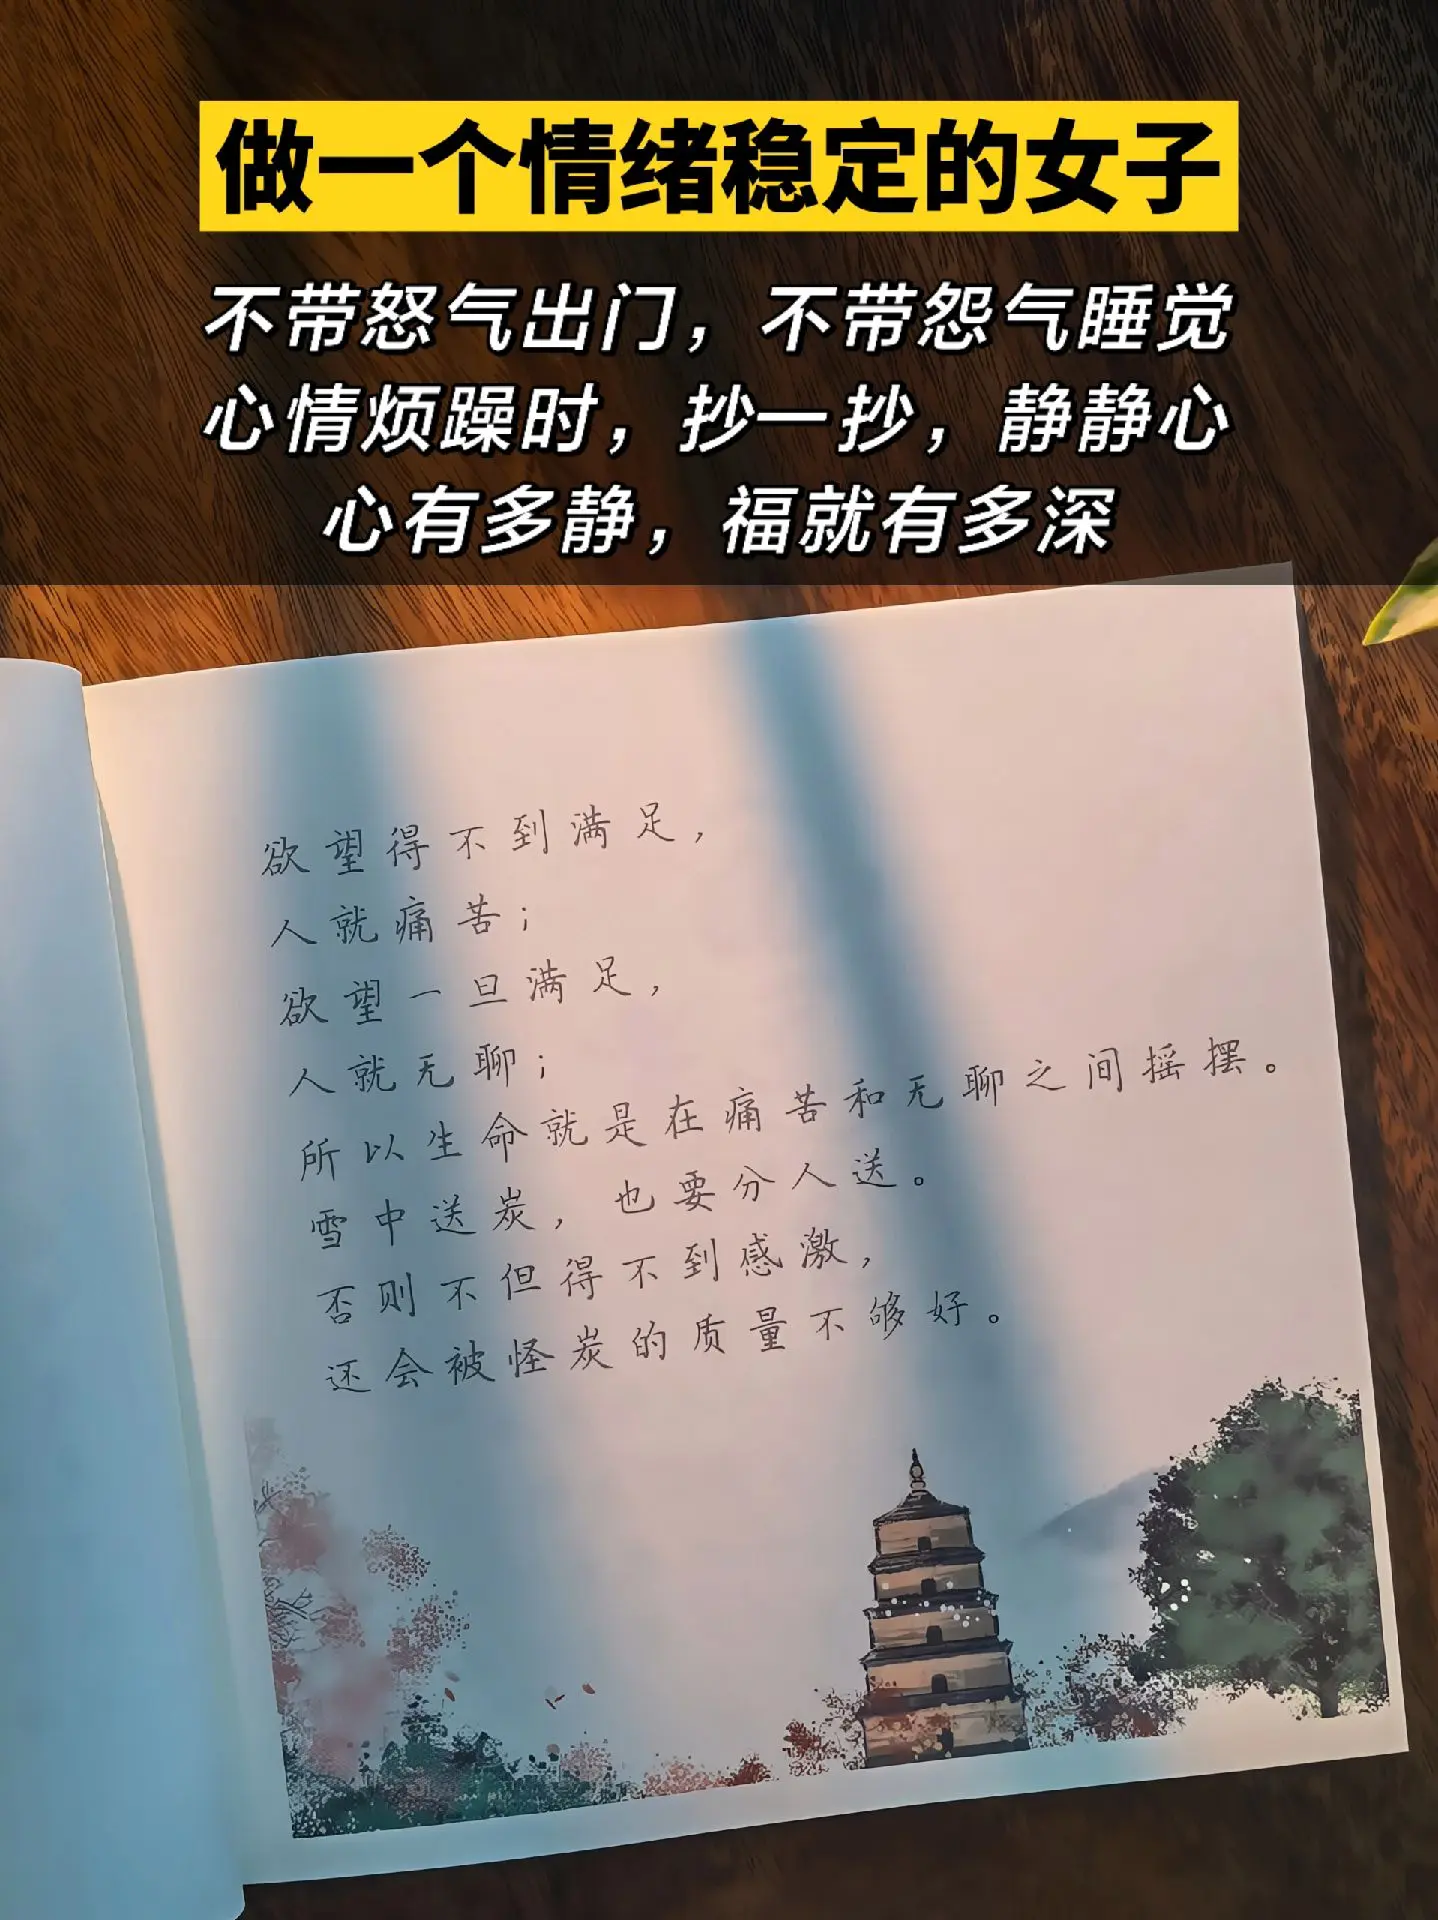 做一个情绪稳定的女子
不带怒气出门，不带怨气睡觉
心情烦躁时，抄一抄，静静心
心有多静，福就有多深
欲望得不到满足，
人就痛苦；
欲望一旦满足，
人就无聊；
所以生命就是在痛苦和无聊之间摇摆。
雪中送炭，也要分人送。
否则不但得不到感激，
还会被怪炭的质量不够好。